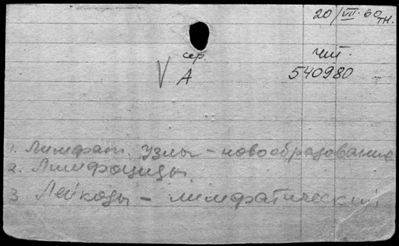 20/VII.60
сер.
V А
чит.
540980
1. Лимфат. узлы - новообразование
2. Лимфоциты.
3 Лейкозы - лимфатический